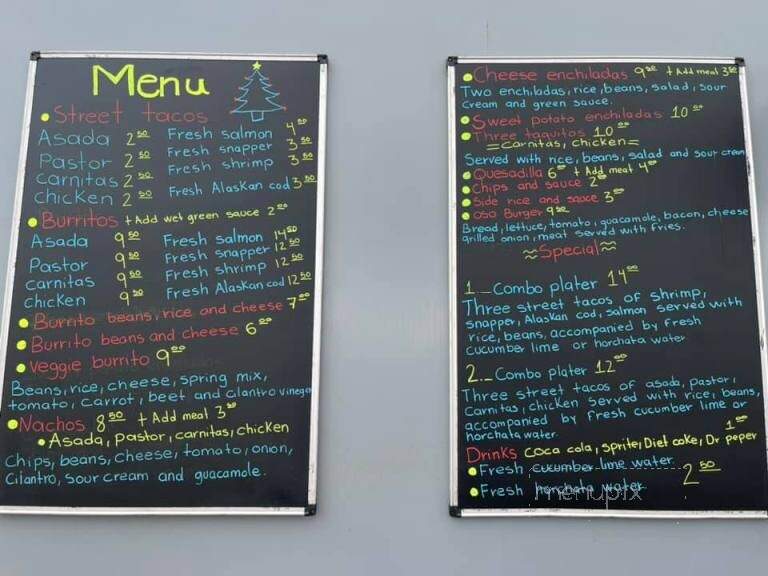 Menu
• Street tacos
Asada 2 50 Fresh salmon 4 00
Pastor 2 50 Fresh snapper 3 50
carnitas 2 50 Fresh shrimp 3 50
chicken 2 50 Fresh Alaskan cod 3 50
• Burritos + Add wet green sauce 2 00
Asada 9 50 Fresh salmon 14 50
Pastor 9 50 Fresh snapper 12 50
carnitas 9 50 Fresh shrimp 12 50
chicken 9 50 Fresh Alaskan cod 12 50
• Burrito beans, rice and cheese 7 00
• Burrito beans and cheese 6 00
• Veggie burrito 9 00
Beans, rice, cheese, spring mix,
tomato, carrot, beet and cilantro vineger
• Nachos 8 50 + Add meal 3 50
• Asada, Pastor, carnitas, chicken
Chips, beans, cheese, tomato, onion,
Cilantro, sour cream and guacamole.
• Cheese enchiladas 9 50 + Add meal 3 50
Two enchiladas, rice, beans, salad, sour
cream and green sauce.
• Sweet potato enchiladas 10 00
• Three taquitos 10 00
= Carnitas, chicken =
Served with rice, beans, salad and sour cream
• Quesadilla 6 00 + Add meat 4 00
• Chips and sauce 2 00
• Side rice and sauce 3 00
• Oso Burger 9 50
Bread, lettuce, tomato, guacamole, bacon, cheese
grilled onion, meat served with fries.
≈ Special ≈
1._ Combo plater 14 00
Three street tacos of shrimp,
snapper, Alaskan cod, salmon served with
rice, beans, accompanied by fresh
cucumber lime or horchata water
2._ Combo plater 12 00
Three street tacos of asada, pastor,
Carnitas, chicken served with rice, beans,
accompanied by fresh cucumber lime or
horchata water.
Drinks coca cola, sprite, Diet coke, Dr peper 1 00
• Fresh cucumber lime water
• Fresh horchata water 2 50
menupix